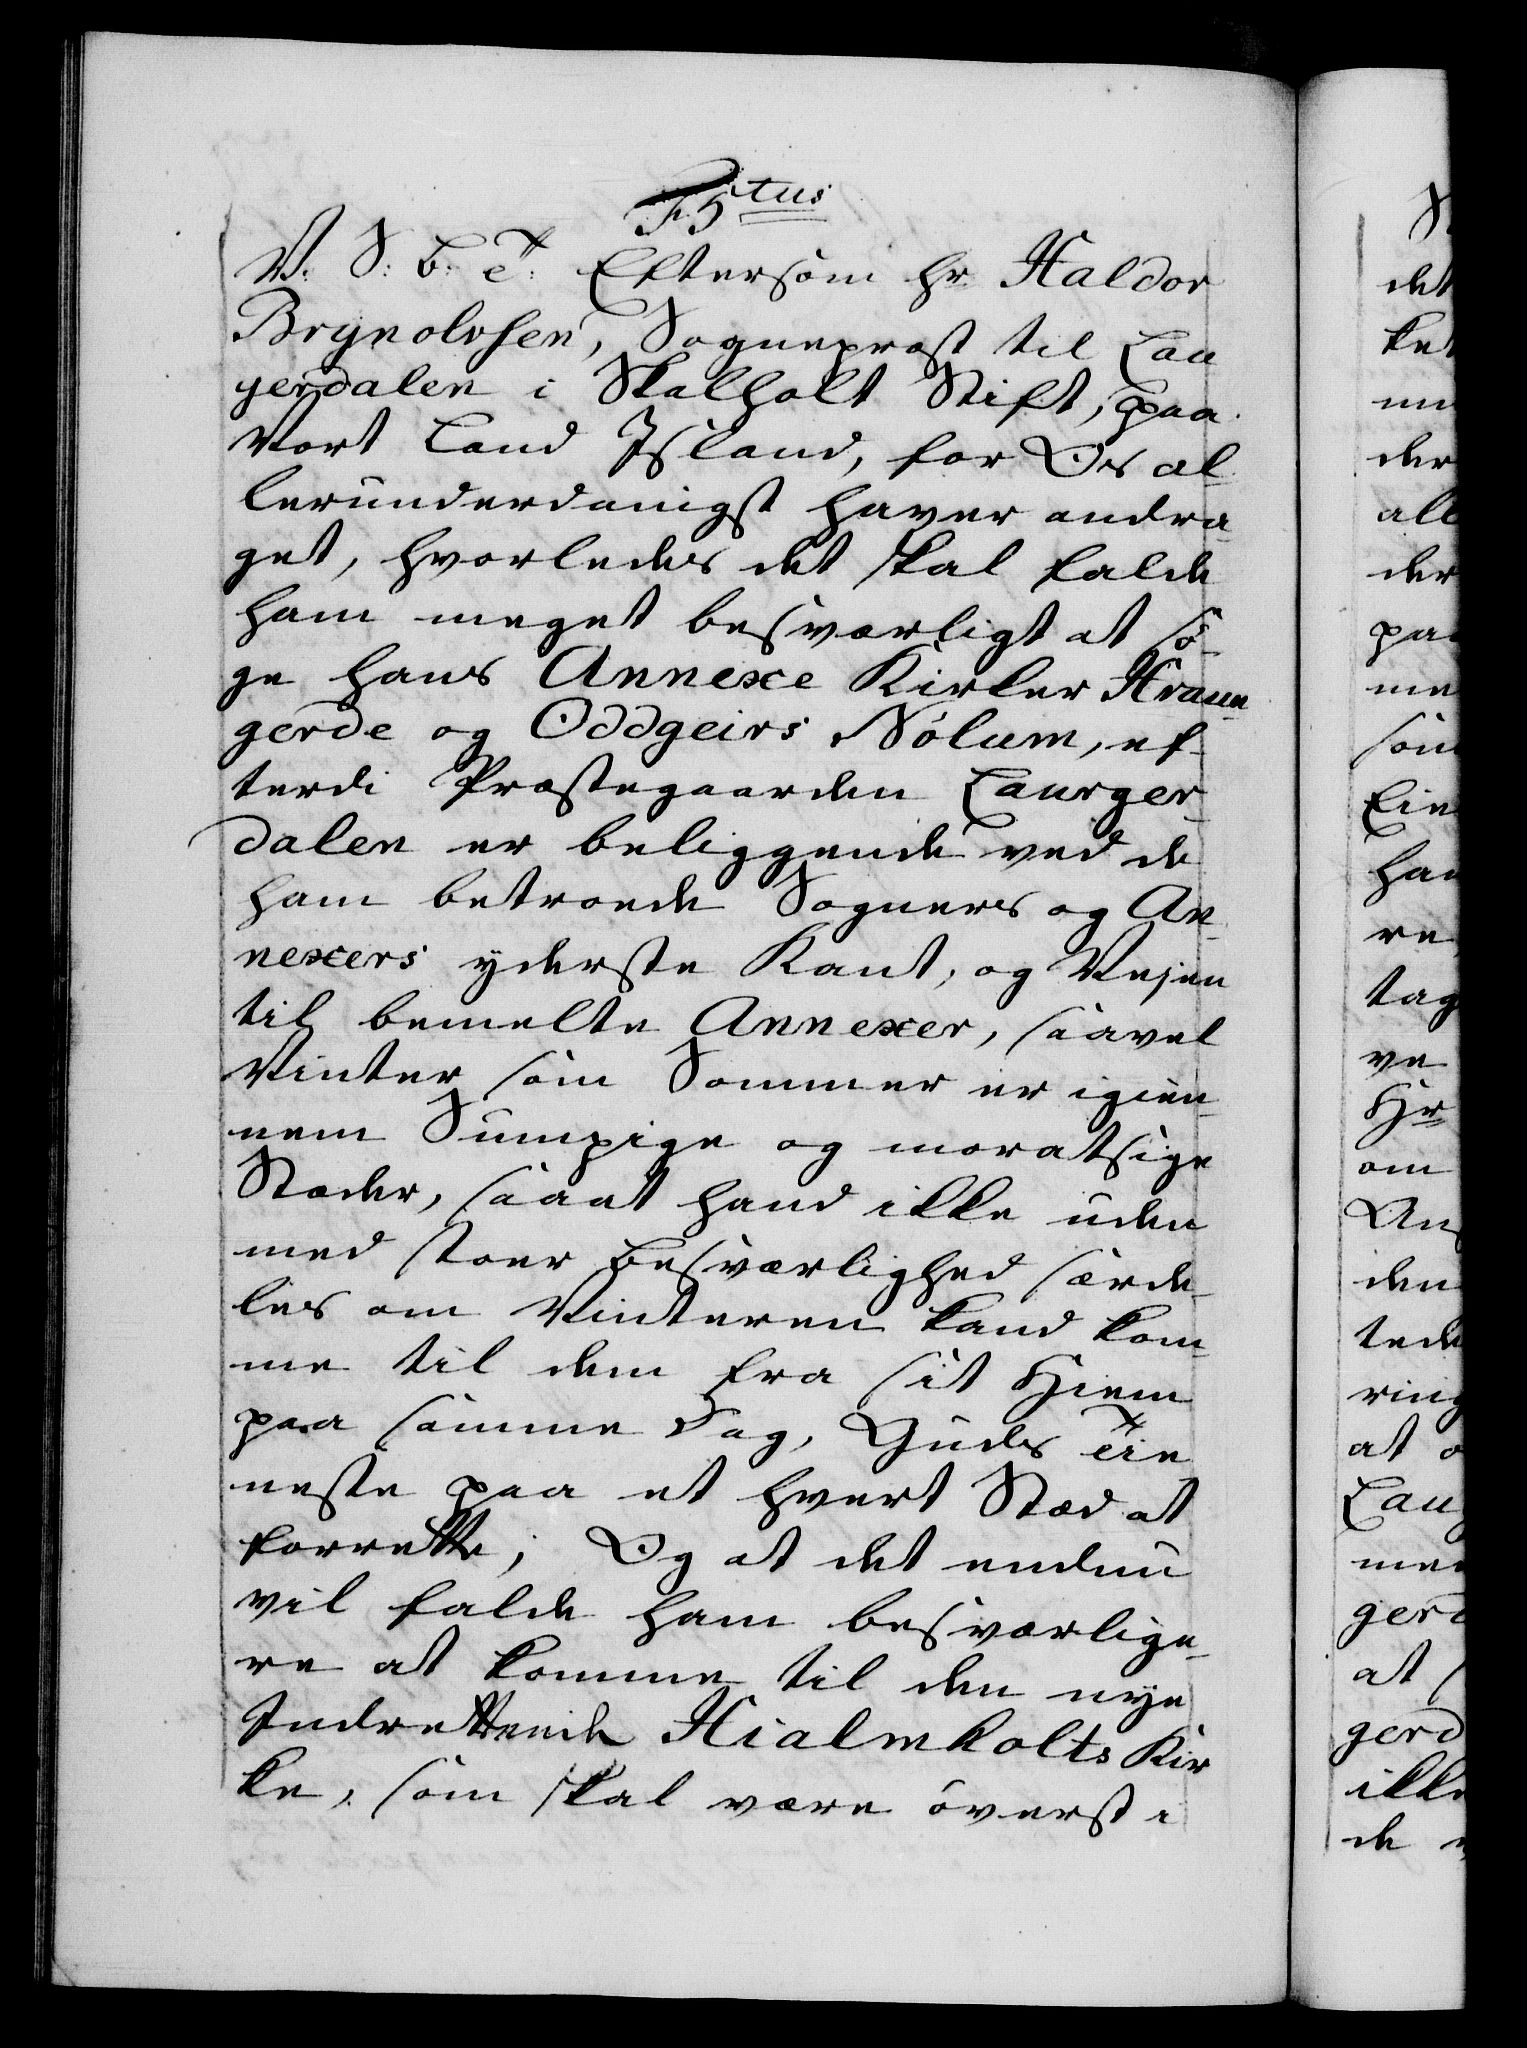 F. 5tus
V. S. b. T. Eftersom hr. Haldor
Brynolvsen, Sognepræst til Lau
gerdalen i Skalholt Stift, paa
Vort Land Jsland, for Os al-
lerunderdanigst haver andra-
get, hvorledes det skal falde
ham meget besværligt at sö-
ge hans Annexe Kirker Hraun-
gerde og Oddgeirs Hólum, ef-
terdi Præstegaarden Laurger-
dalen er beliggende ved de
ham betroede Sogners og An-
nexers yderste Kant, og Vejen
til bemelte Annexer, saavel
Vinter som Sommer er igien-
nem Sumpige og moratsige
Stæder, saa at hand ikke uden
med stoer besværlighed særde-
les om Vinteren kand kom-
me til dem fra sit Hiem
paa samme Dag, Guds Tie
neste paa et hvert Stæd at
forrette; Og at det endnu
vil falde ham besværlige-
re at komme til den nye
Indrettende Hialmholts Kir
ke, som skal være överst i
S
det
ket
der
all
der
paa
me
som
Ein
han
re
tag
ve
Hr
om
An
den
tede
ring
at
Laug
men
gerd
at
gerd
ikke
de